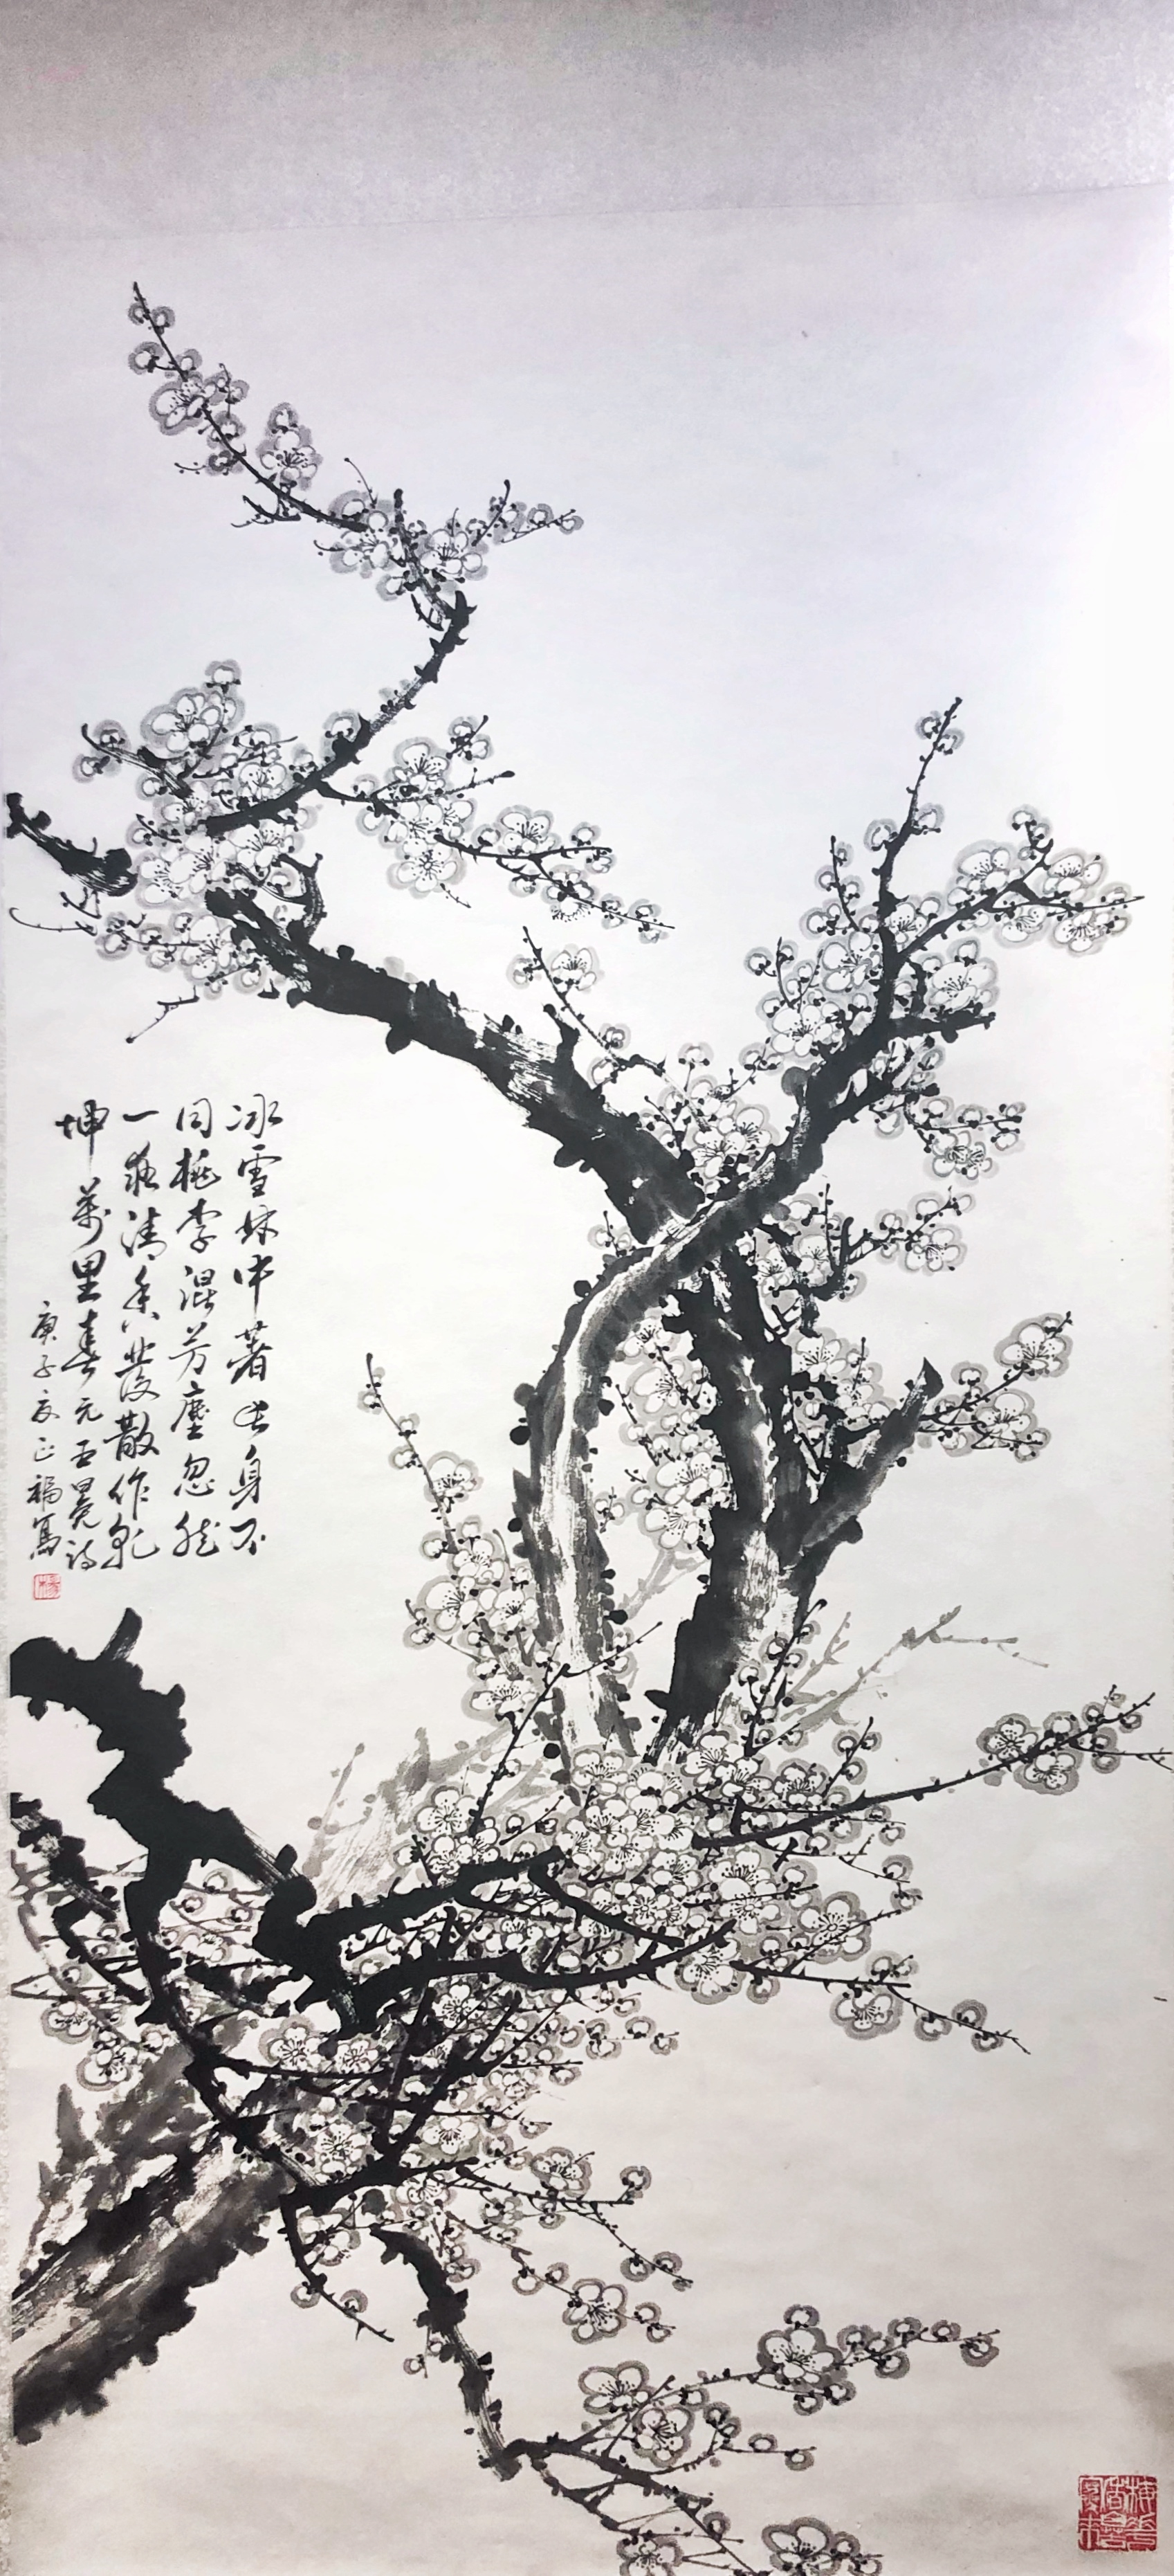 冰雪林中著此身不
同桃李混芳塵忽然
一夜清香發散作乾
坤萬里春 元王冕詩
庚子夏正福寫
梅花
香自苦
寒來